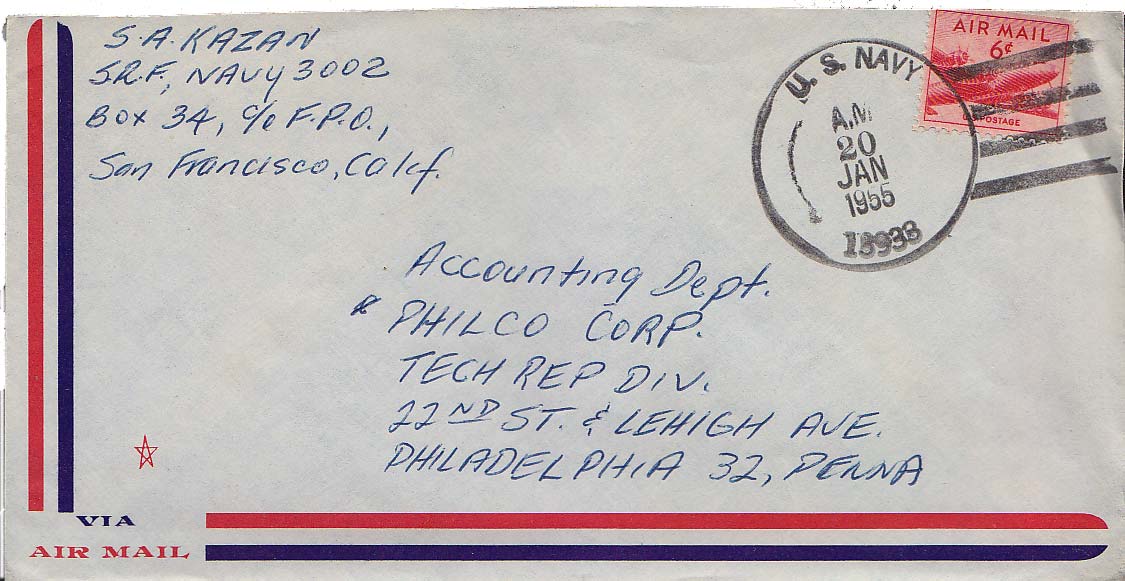 S.A. KAZAN
S.R.F., NAVY 3002
BOX 34, c/o F.P.O.,
San Francisco, Calif.
AIR MAIL
6¢
POSTAGE
U. S. NAVY
A.M
20
JAN
1955
Accounting Dept.
PHILCO CORP.
TECH REP DIV.
22ND ST. & LEHIGH AVE.
PHILADELPHIA 32, PENNA
VIA
AIR MAIL